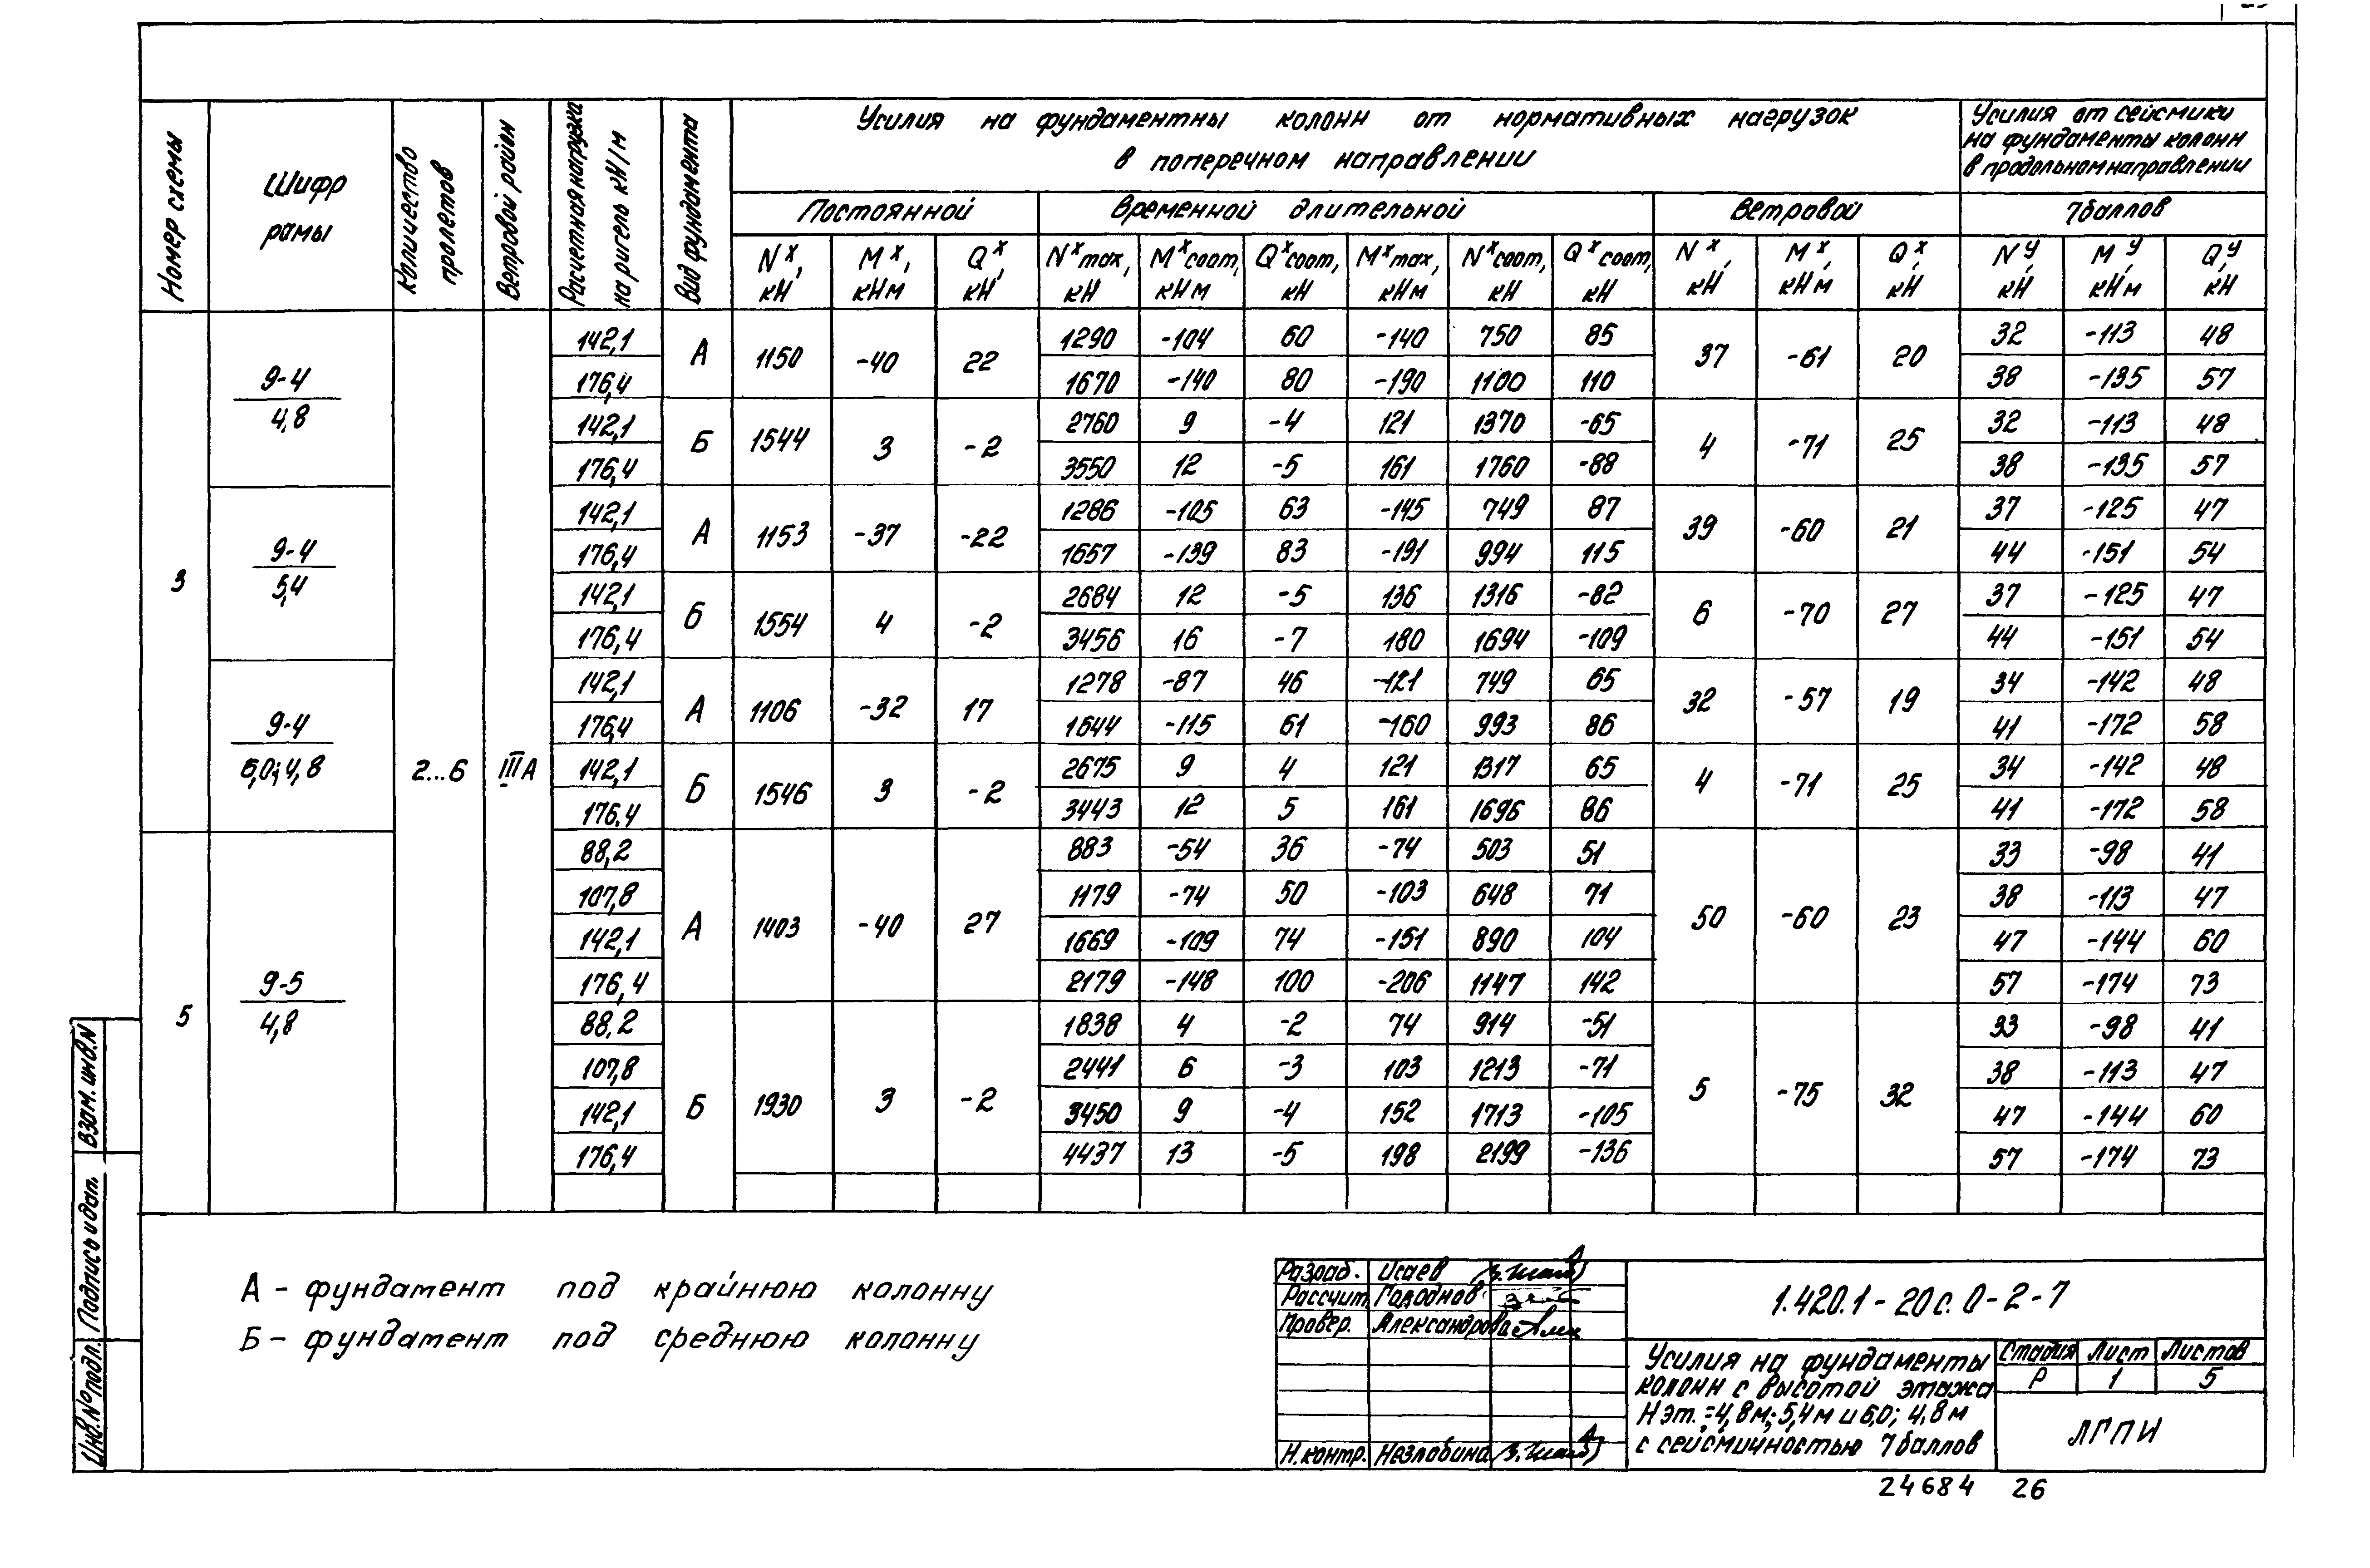 Номер схемы
Шифр рамы
Количество пролетов
Ветровой район
Расчетная нагрузка на ригель кН/м
Вид фундамента
Усилия на фундаментны колонн от нормативных нагрузок
в поперечном направлении
Усилия от сейсмики
на фундаменты колонн
в продольном направлении
Постоянной Временной длительной Ветровой 7 баллов
N^x, кН M^x, кНм Q^x, кН N^x max, кН M^x соот, кНм Q^x соот, кН M^x max, кНм N^x соот, кН Q^x соот, кН N^x, кН M^x, кНм Q^x, кН N^y, кН M^y, кНм Q^y, кН
3 2...6 III А
9-4
4,8
142,1 А 1150 -40 22 1290 -104 60 -140 750 85 37 -61 20 32 -113 48
176,4 1670 -140 80 -190 1100 110 38 -135 57
142,1 Б 1544 3 -2 2760 9 -4 121 1370 -65 4 -71 25 32 -113 48
176,4 3550 12 -5 161 1760 -88 38 -135 57
9-4
5,4
142,1 А 1153 -37 -22 1286 -105 63 -145 749 87 39 -60 21 37 -125 47
176,4 1657 -139 83 -191 994 115 44 -151 54
142,1 Б 1554 4 -2 2684 12 -5 136 1316 -82 6 -70 27 37 -125 47
176,4 3456 16 -7 180 1694 -109 44 -151 54
9-4
6,0; 4,8
142,1 А 1106 -32 17 1278 -87 46 -121 749 65 32 -57 19 34 -142 48
176,4 1644 -115 61 -160 993 86 41 -172 58
142,1 Б 1546 3 -2 2675 9 4 121 1317 65 4 -71 25 34 -142 48
176,4 3443 12 5 161 1696 86 41 -172 58
5
9-5
4,8
88,2 А 1403 -40 27 883 -54 36 -74 503 51 50 -60 23 33 -98 41
107,8 1179 -74 50 -103 648 71 38 -113 47
142,1 1669 -109 74 -151 890 104 47 -144 60
176,4 2179 -148 100 -206 1147 142 57 -174 73
88,2 Б 1930 3 -2 1838 4 -2 74 914 -51 5 -75 32 33 -98 41
107,8 2441 6 -3 103 1213 -71 38 -113 47
142,1 3450 9 -4 152 1713 -105 47 -144 60
176,4 4437 13 -5 198 2199 -136 57 -174 73
А - фундамент под крайнюю колонну
Б - фундамент под среднюю колонну
Разраб. Исаев
Рассчит. Городнов
Провер. Александрова
Н.контр. Незлобина
1.420.1-20с.0-2-7
Усилия на фундаменты
колонн с высотой этажа
Н эт. =4,8м; 5,4м и 6,0; 4,8м
с сейсмичностью 7 баллов
Стадия Лист Листов
Р 1 5
ЛГПИ
Взам. инв.N
Подпись и дат.
Инв.№ подл.
24684 26